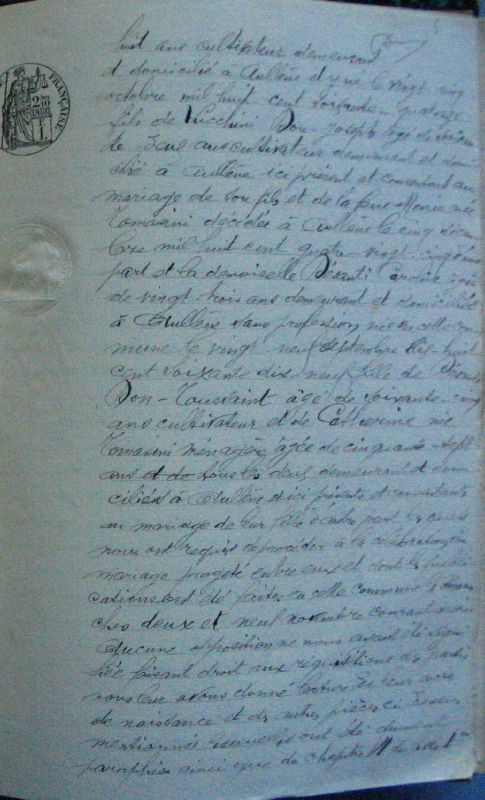 FRANÇAISE.
huit ans cultivateur demeurant
et domicilié à Aullène et y né le vingt cinq
octobre mil huit cent soixante quatorze
fils de Lucchini Don Joseph âgé de soixante
ans cultivateur demeurant et domi
cilié à Aullène ici présent et consentant au
mariage de son fils et de la feue Marie née
Tomasini décédée à Aullène le cinq décem
bre mil huit cent quatre vingt
part et la demoiselle Caroline âgée
de vingt trois ans demeurant et domiciliée
à Aullène sans profession née en cette com
mune le vingt neuf septembre mil huit
cent soixante dix neuf fille de
Don Toussaint âgé de soixante cinq
ans cultivateur et de Catherine née
Tomasini ménagère âgée de cinquante sept
ans et do tous les deux demeurant et domi
ciliés à Aullène et ici présents et consentants
au mariage de leur fille d'autre part lesquels
nous ont requis de procéder à la célébration du
mariage projeté entre eux et dont les publi
cations ont été faites en cette commune les diman
ches deux et neuf novembre courant
Aucune opposition ne nous ayant été signi
fiée faisant droit aux réquisitions des parties
nous leur avons donné lecture de leur acte
de naissance et des autres pièces ci dessus
mentionnées lesquelles ont été dûment
paraphées ainsi que du chapitre